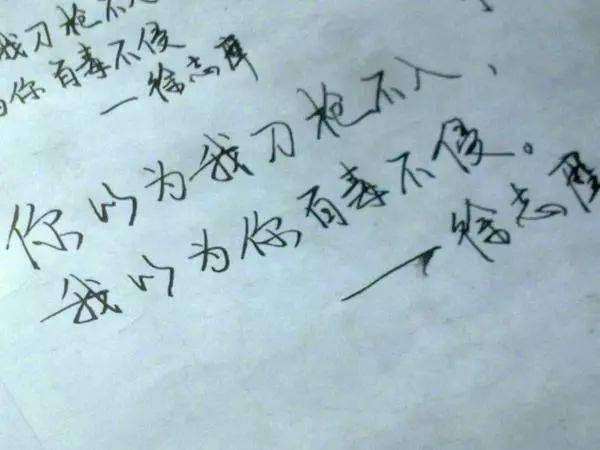 我刀枪不入
为你百毒不侵
一徐志摩
你以为我刀枪不入、
我以为你百毒不侵。
一徐志摩